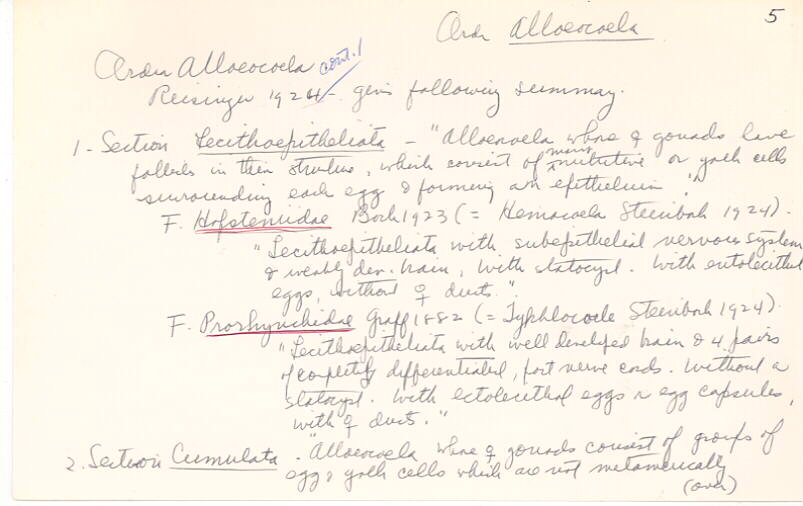 5
Order Alloeocoela
Order Alloeocoela cont.
Reisinger 1924 - gives following summary.
1 - Section Lecithoepitheliata - "Alloeocoela whose ♀ gonads have
follicles in their structure, which consist of many nutritive or yolk cells
surrounding each egg & forming an epithelium."
F. Hofsteniidae Bock 1923 (= Hemiacoela Steinbock 1924).
"Lecithoepitheliata with subepithelial nervous system
& weakly dev. brain, with statocyst. With entolecithal
eggs, without ♀ ducts."
F. Prorhynchidae Graff 1882 (= Typhlocoela Steinbock 1924).
"Lecithoepitheliata with well developed brain & 4 pairs
of completely differentiated, nerve cords. Without a
statocyst. With ectolecithal eggs & egg capsules,
with ♀ ducts."
2. Section Cumulata - "Alloeocoela whose ♀ gonads consist of groups of
egg & yolk cells which are not metamerically
(over)